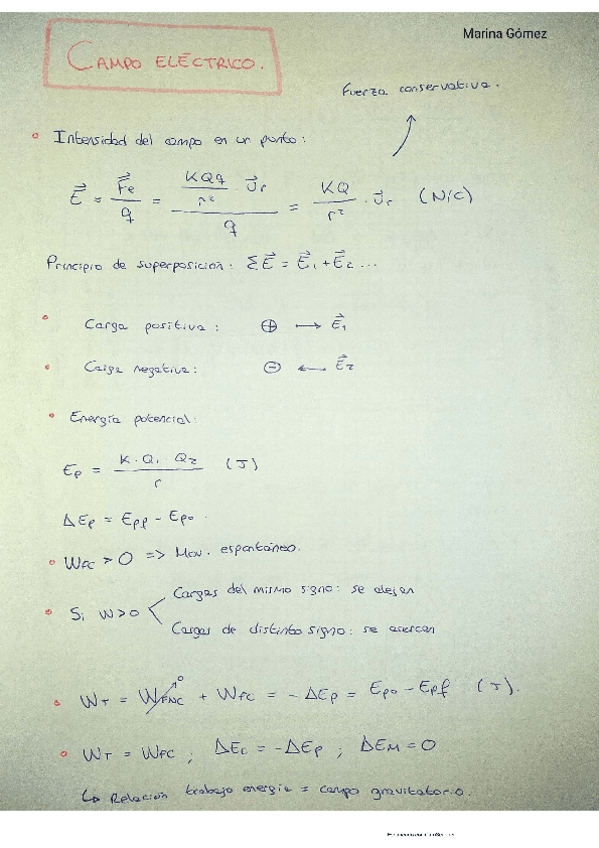 Marina Gómez
CAMPO ELÉCTRICO.
Fuerza conservativa.
Intensidad del campo en un punto:
E⃗ = F⃗e / q = (KQq / r² · U⃗r) / q = KQ / r² · U⃗r (N/C)
Principio de superposición: ΣE⃗ = E⃗₁ + E⃗₂ ...
Carga positiva: ⊕ → E⃗₁
Carga negativa: ⊖ ← E⃗₂
Energía potencial:
Ep = K · Q₁ Q₂ / r (J)
ΔEp = Epf - Epo.
WFC > 0 => Mov. espontáneo.
Cargas del mismo signo: se alejan
Si W>0
Cargas de distinto signo: se acercan
WT = WFNC⁰ + WFC = - ΔEp = Epo - Epf (J).
WT = WFC ; ΔEc = -ΔEp ; ΔEM = 0
↳ Relación trabajo energía = campo gravitatorio.